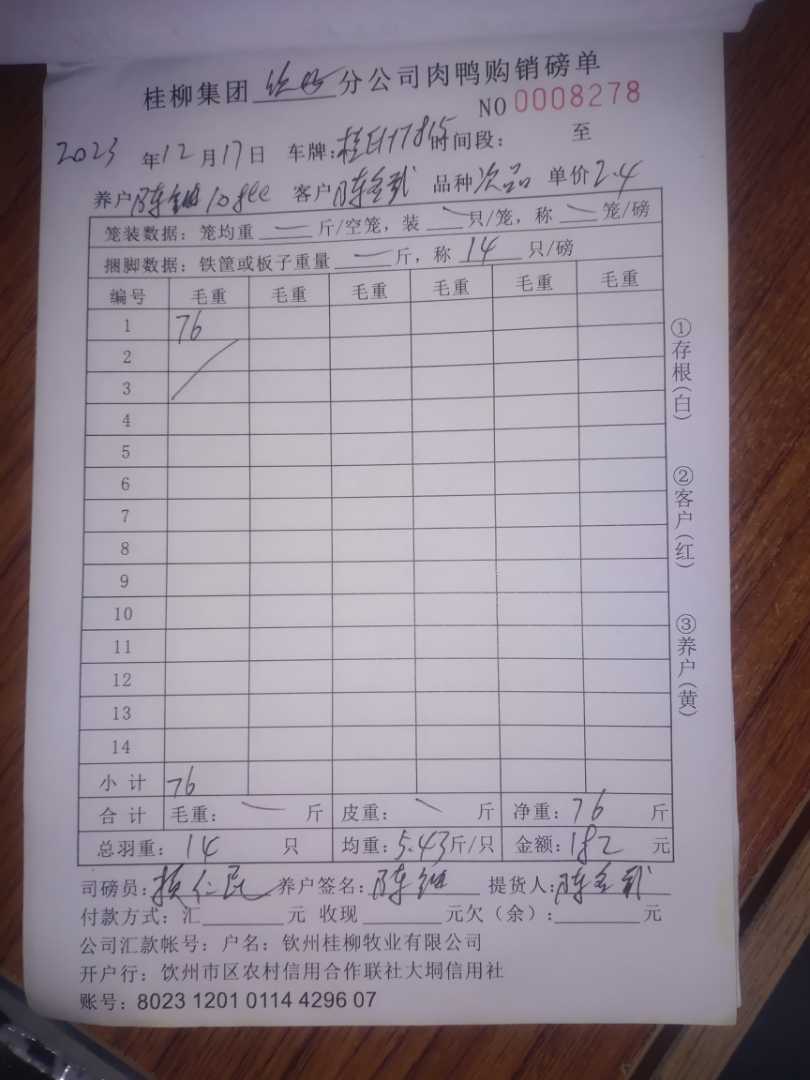 桂柳集团 分公司肉鸭购销磅单
NO 0008278
2023 年 12 月 17 日 车牌: 时间段: 至
养户 陈 客户 陈 品种 次品 单价 2.4
笼装数据: 笼均重 — 斤/空笼, 装 — 只/笼, 称 — 笼/磅
捆脚数据: 铁筐或板子重量 — 斤, 称 14 只/磅
编号 毛重 毛重 毛重 毛重 毛重 毛重
1 76
2
3
4
5
6
7
8
9
10
11
12
13
14
小计 76
合计 毛重: — 斤 皮重: — 斤 净重: 76 斤
总羽重: 14 只 均重: 5.43 斤/只 金额: 182 元
司磅员: 养户签名: 陈 提货人: 陈
付款方式: 汇 元 收现 元欠(余): 元
公司汇款帐号: 户名: 钦州桂柳牧业有限公司
开户行: 饮州市区农村信用合作联社大垌信用社
账号: 8023 1201 0114 4296 07
①存根(白)
②客户(红)
③养户(黄)